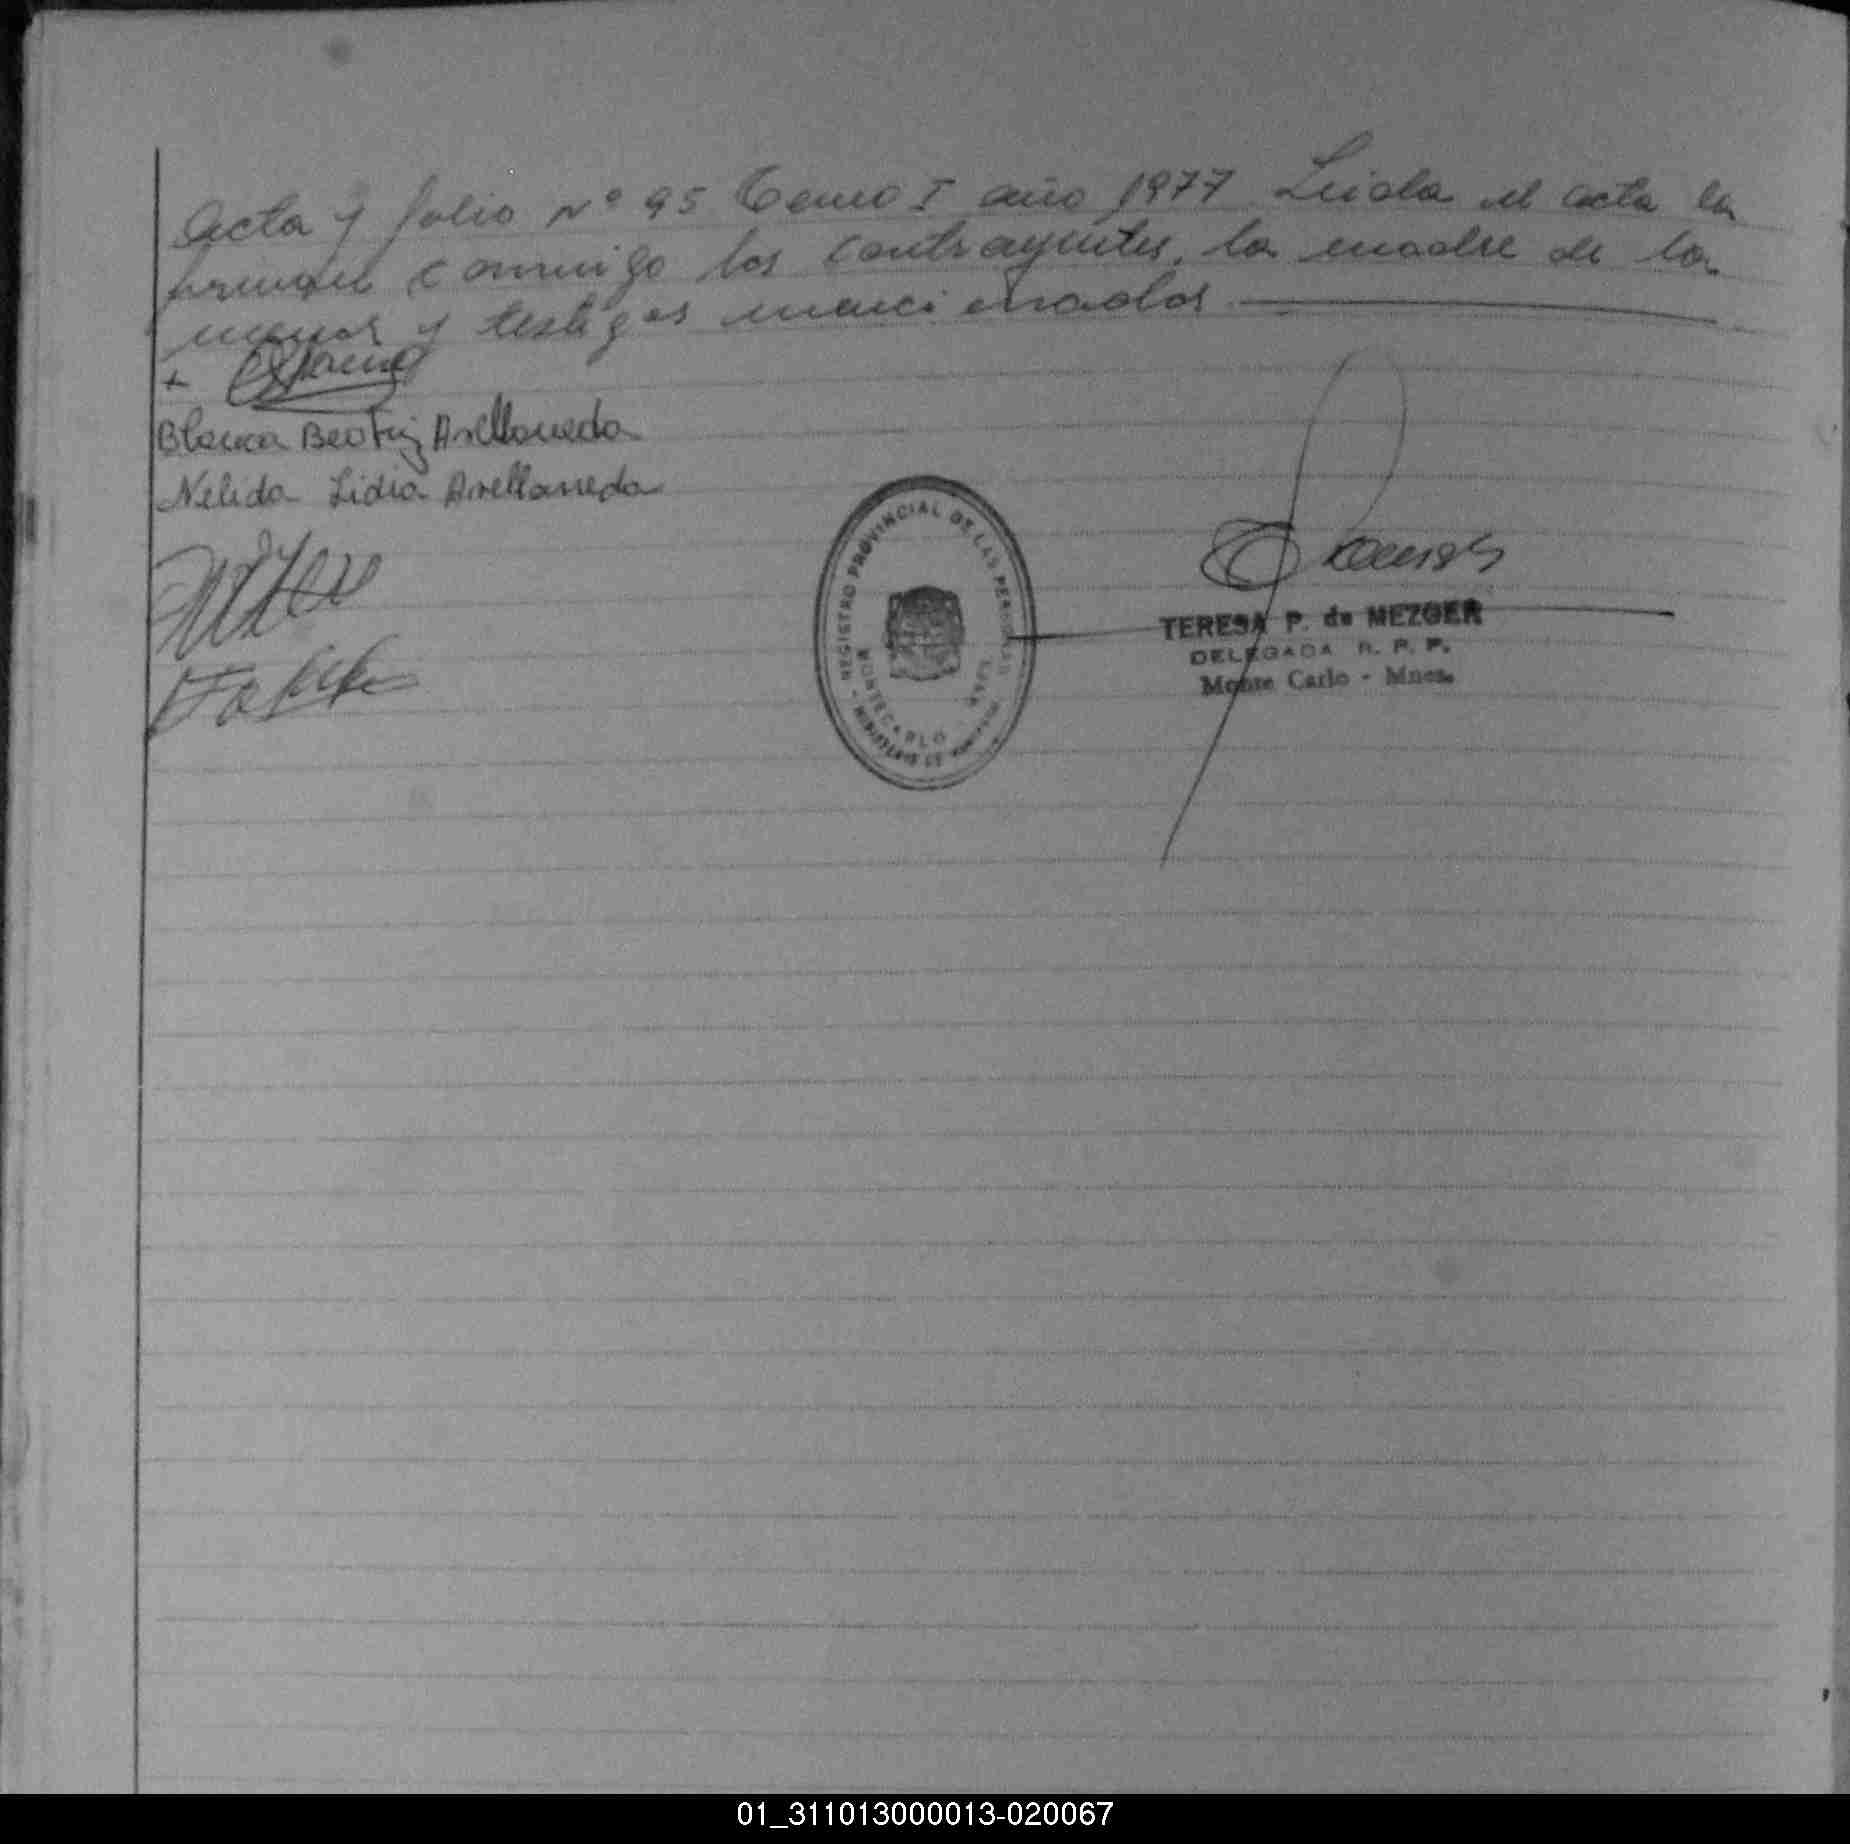 Acta y folio Nº 95 Tomo I año 1977 Leida el acta la
firman conmigo los contrayentes, la madre de la
menor y testigos mencionados
+
Blanca Beatriz Avellaneda
Nelida Lidia Avellaneda
REGISTRO PROVINCIAL DE LAS PERSONAS
MONTECARLO
MINISTERIO DE
TERESA P. de MEZGER
DELEGADA R. P. P.
Monte Carlo - Mnes.
01_311013000013-020067